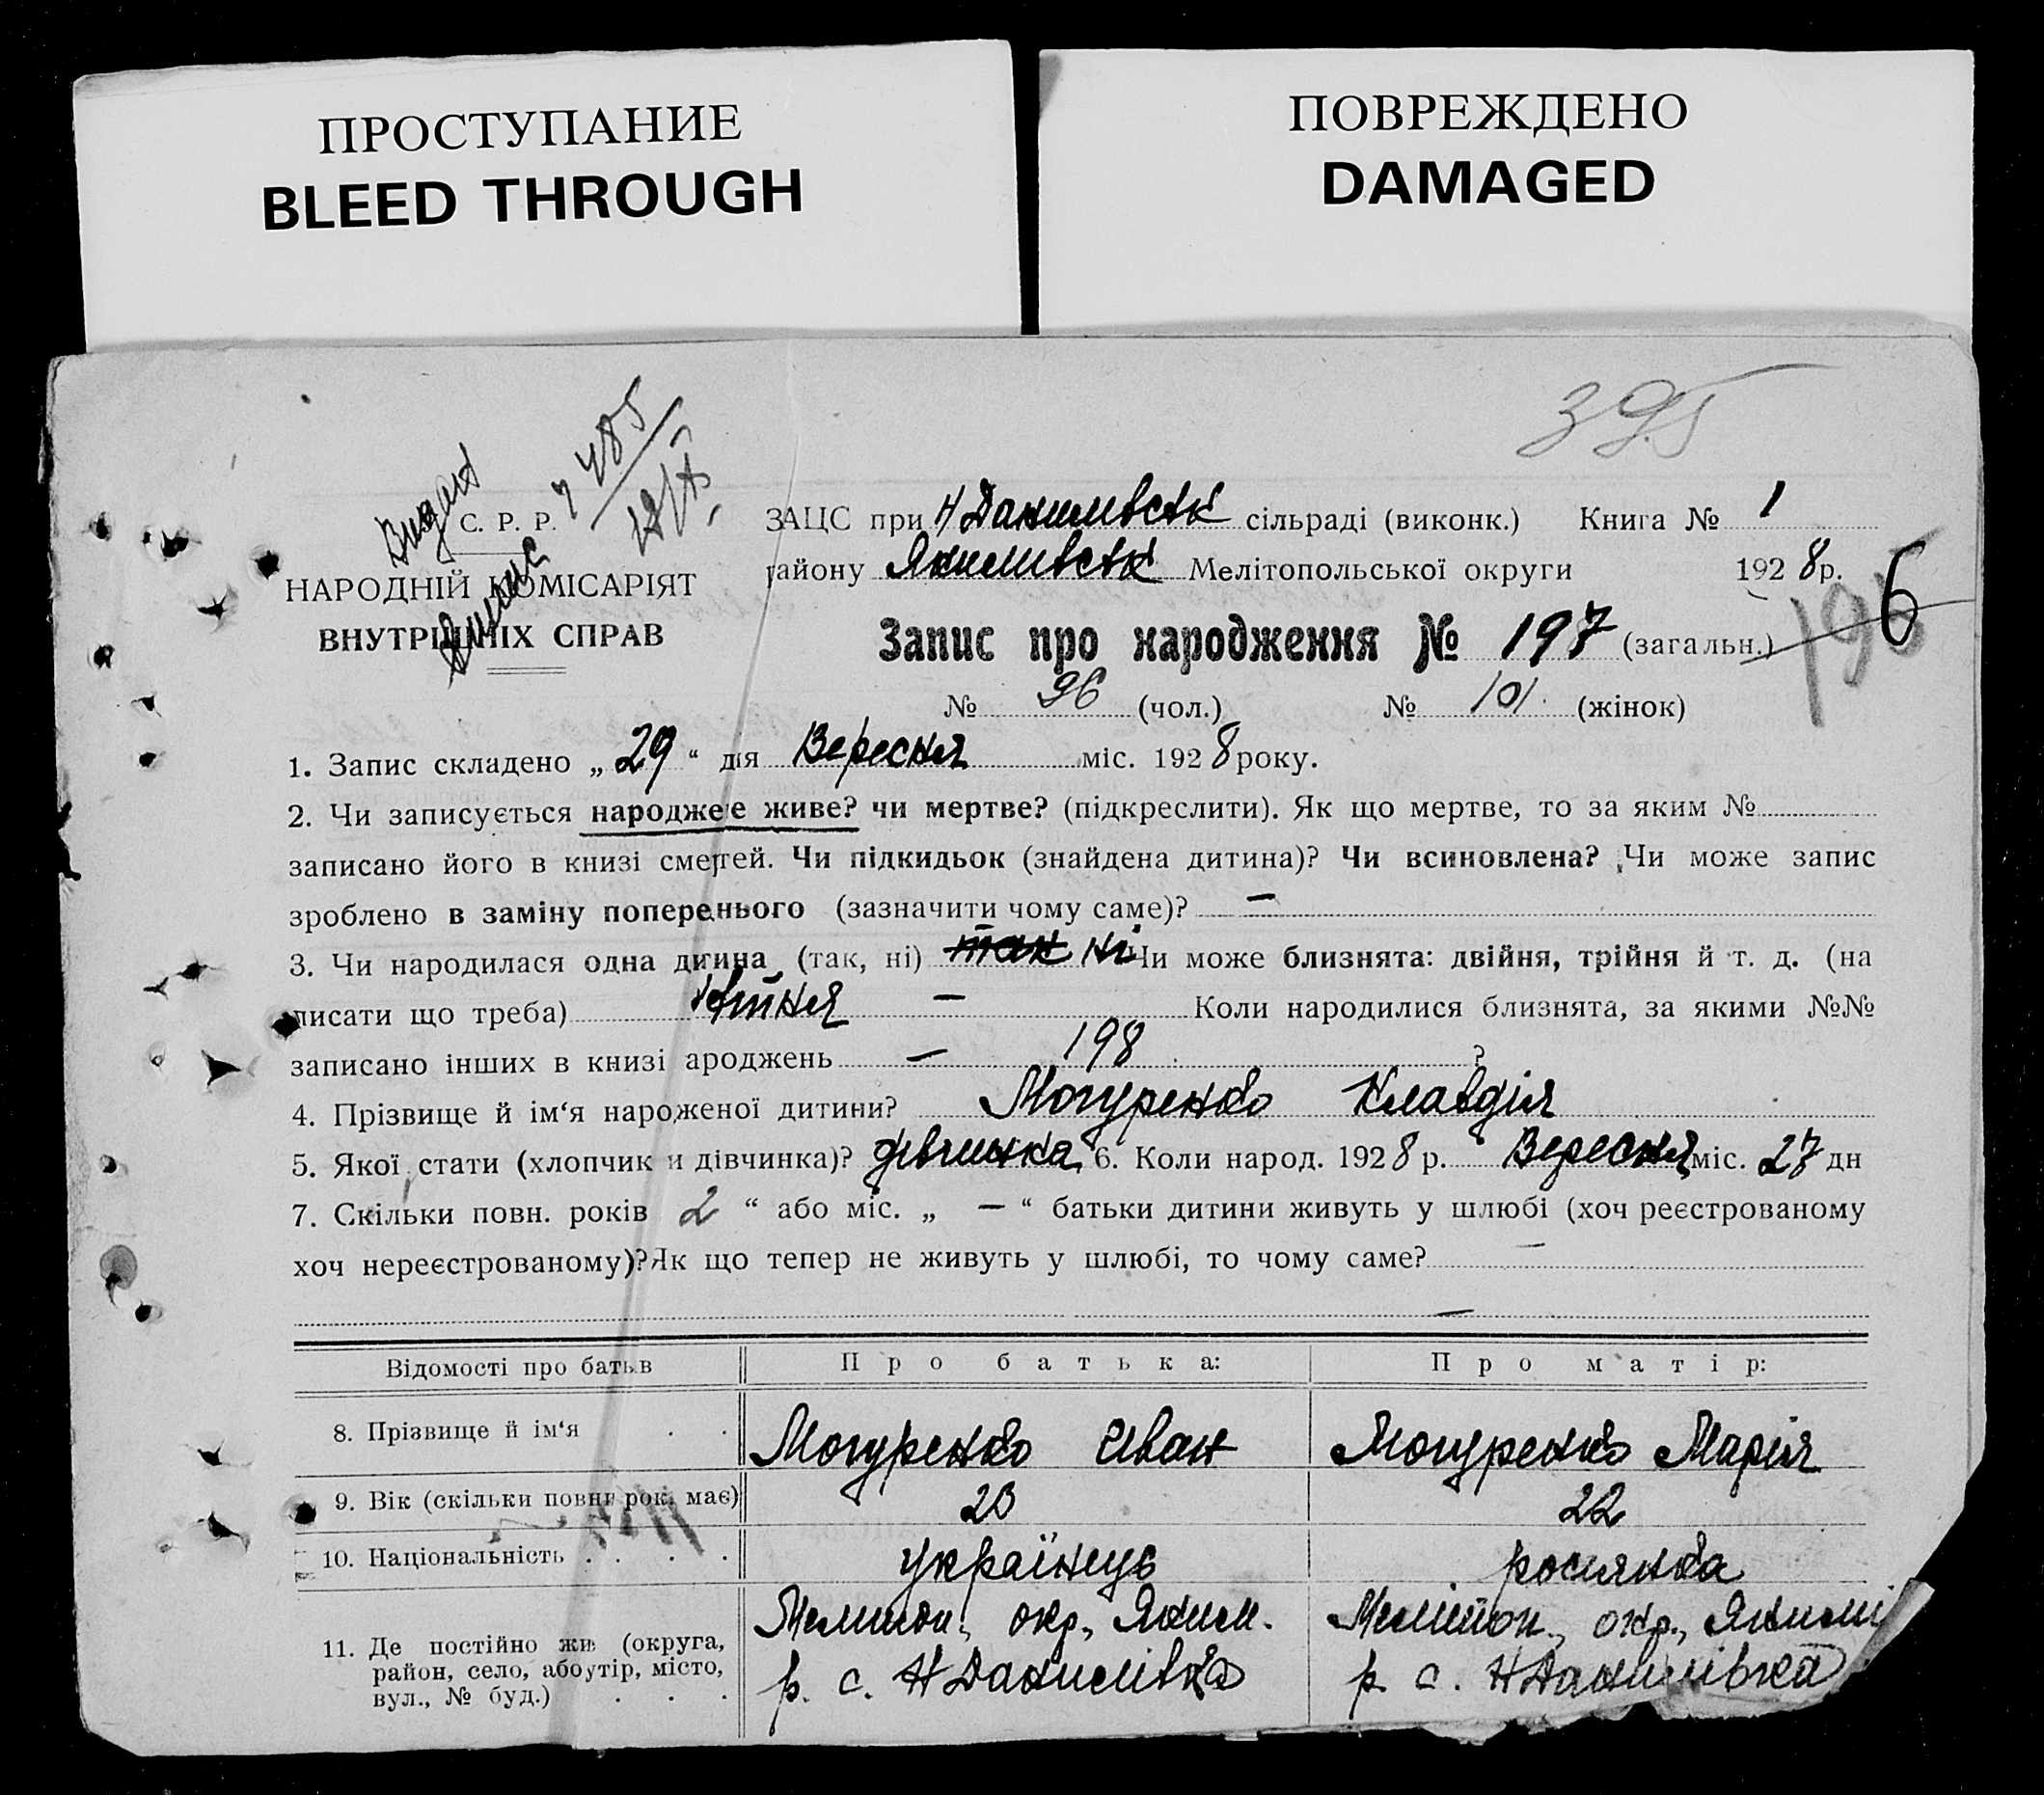 ПРОСТУПАНИЕ
BLEED THROUGH
ПОВРЕЖДЕНО
DAMAGED
395
485
С. Р. Р.
НАРОДНІЙ КОМІСАРІЯТ
ВНУТРІШНІХ СПРАВ
ЗАЦС при Н Данилівськ сільраді (виконк.) Книга № 1
району Якимівськ Мелітопольської округи 1928 р.
Запис про народження № 197 (загальн.) 196
№ 96 (чол.) № 101 (жінок)
1. Запис складено „ 29 “ дня Вересня міс. 1928 року.
2. Чи записується народжене живе? чи мертве? (підкреслити). Як що мертве, то за яким №
записано його в книзі смертей. Чи підкидьок (знайдена дитина)? Чи всиновлена? Чи може запис
зроблено в заміну попереднього (зазначити чому саме)? —
3. Чи народилася одна дитина (так, ні) так ні Чи може близнята: двійня, трійня й т. д. (на
писати що треба) двійня — Коли народилися близнята, за якими №№
записано інших в книзі ароджень — 198 ?
4. Прізвище й ім‘я народженої дитини? Могуренко Клавдія
5. Якої стати (хлопчик и дівчинка)? дівчинка 6. Коли народ. 1928 р. Вересня міс. 27 дн
7. Скільки повн. років 2 “ або міс. „ — “ батьки дитини живуть у шлюбі (хоч реєстрованому
хоч нереєстрованому)? Як що тепер не живуть у шлюбі, то чому саме? —
—
Відомості про батьків Про батька: Про матір:
8. Прізвище й ім‘я Могуренко Иван Могуренко Марія
9. Вік (скільки повни рок. має) 23 22
10. Національність українець росіянка
11. Де постійно жив (округа, Мелитоп. окр., Яким. Мелітоп., окр., Якимі
район, село, або хутір, місто, р. с. Н Данилівка р. с. Н Данилівка
вул., № буд.)